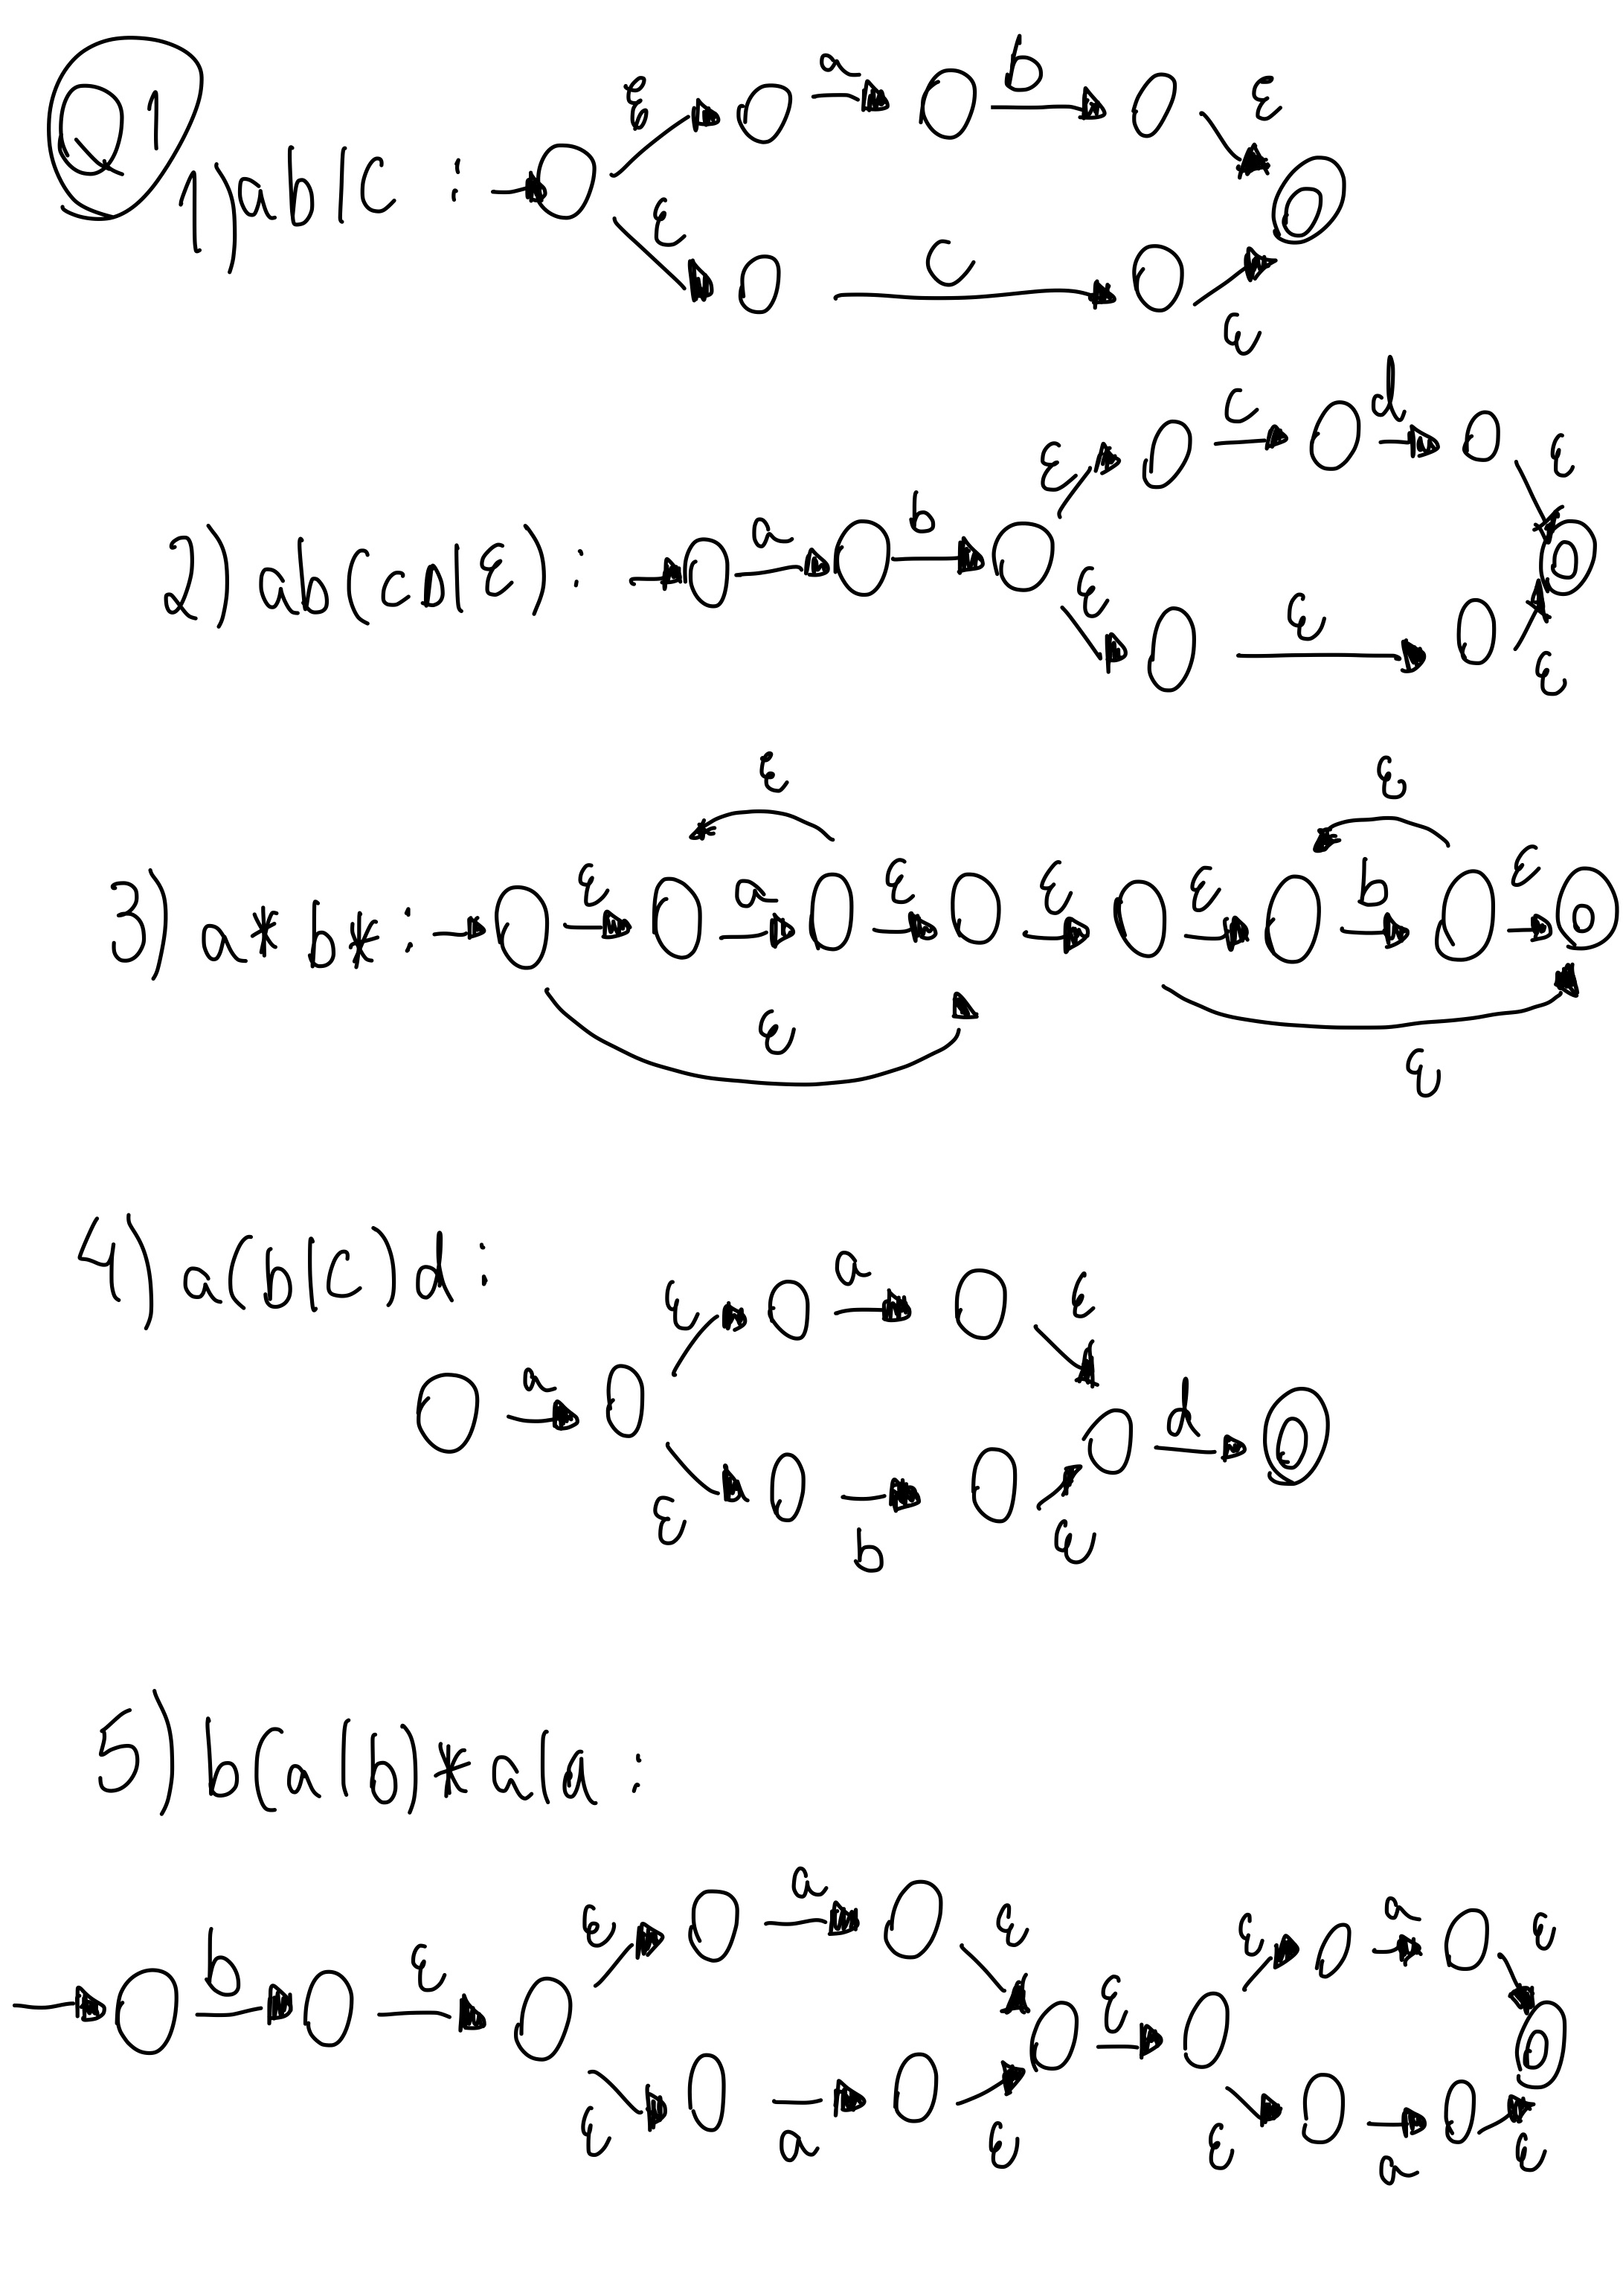 Q1
1) ab|c :
ε a b ε
ε c ε
2) ab(cd|ε) :
a b ε c d ε
ε ε ε
3) a*b* :
ε ε
ε a ε ε ε b ε
ε ε
4) a(b|c)d :
ε a ε
a d
ε b ε
5) b(a|b)*a|a :
ε a ε ε a ε
b ε ε
ε a ε ε a ε